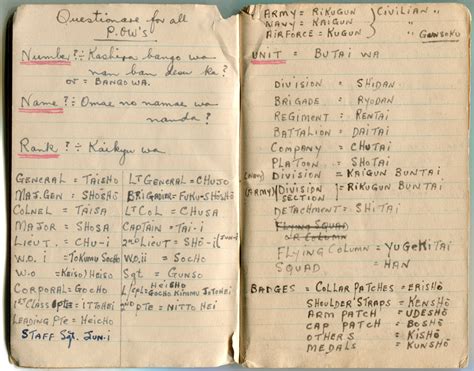 Questionare for all
P.O.W's
Number? :- Kashira bango wa
nan ban desu ka?
or = BANGO WA.
Name? :- Omae no namae wa
nanda?
Rank? :- Kaikyu wa
GENERAL = TAISHO
LT GENERAL = CHUJO
MAJ. GEN = SHOSHO
BRIGADIER = FUKU-SHOSHO
COLNEL = TAISA
LT COL = CHUSA
MAJOR = SHOSA
CAPTAIN = TAI-I
LIEUT. = CHU-I
2nd LIEUT = SHO-I
W.O. i = TOKUMU SOCHO
W.O ii = SOCHO
W.O =
Sgt = GUNSO
CORPORAL = GOCHO
L/Cpl =
1st CLASS Pte = ITTOHEI
2nd Pte = NITTO HEI
LEADING Pte = HEICHO
STAFF Sgt. JUN-I
ARMY = RIKUGUN
NAVY = KAIGUN
AIRFORCE = KUGUN
CIVILIAN =
GUNSOKU
UNIT = BUTAI WA
DIVISION = SHIDAN
BRIGADE = RYODAN
REGIMENT = RENTAI
BATTALION = DAITAI
COMPANY = CHUTAI
PLATOON = SHOTAI
(Navy) DIVISION = KAIGUN BUNTAI
(ARMY) DIVISION = RIKUGUN BUNTAI
SECTION
DETACHMENT = SHITAI
FLYING SQUAD
FLYING COLUMN = YUGEKI TAI
SQUAD = HAN
BADGES = COLLAR PATCHES = ERISHŌ
SHOULDER STRAPS = KENSHŌ
ARM PATCH = UDESHŌ
CAP PATCH = BOSHŌ
OTHERS = KISHŌ
MEDALS = KUNSHŌ